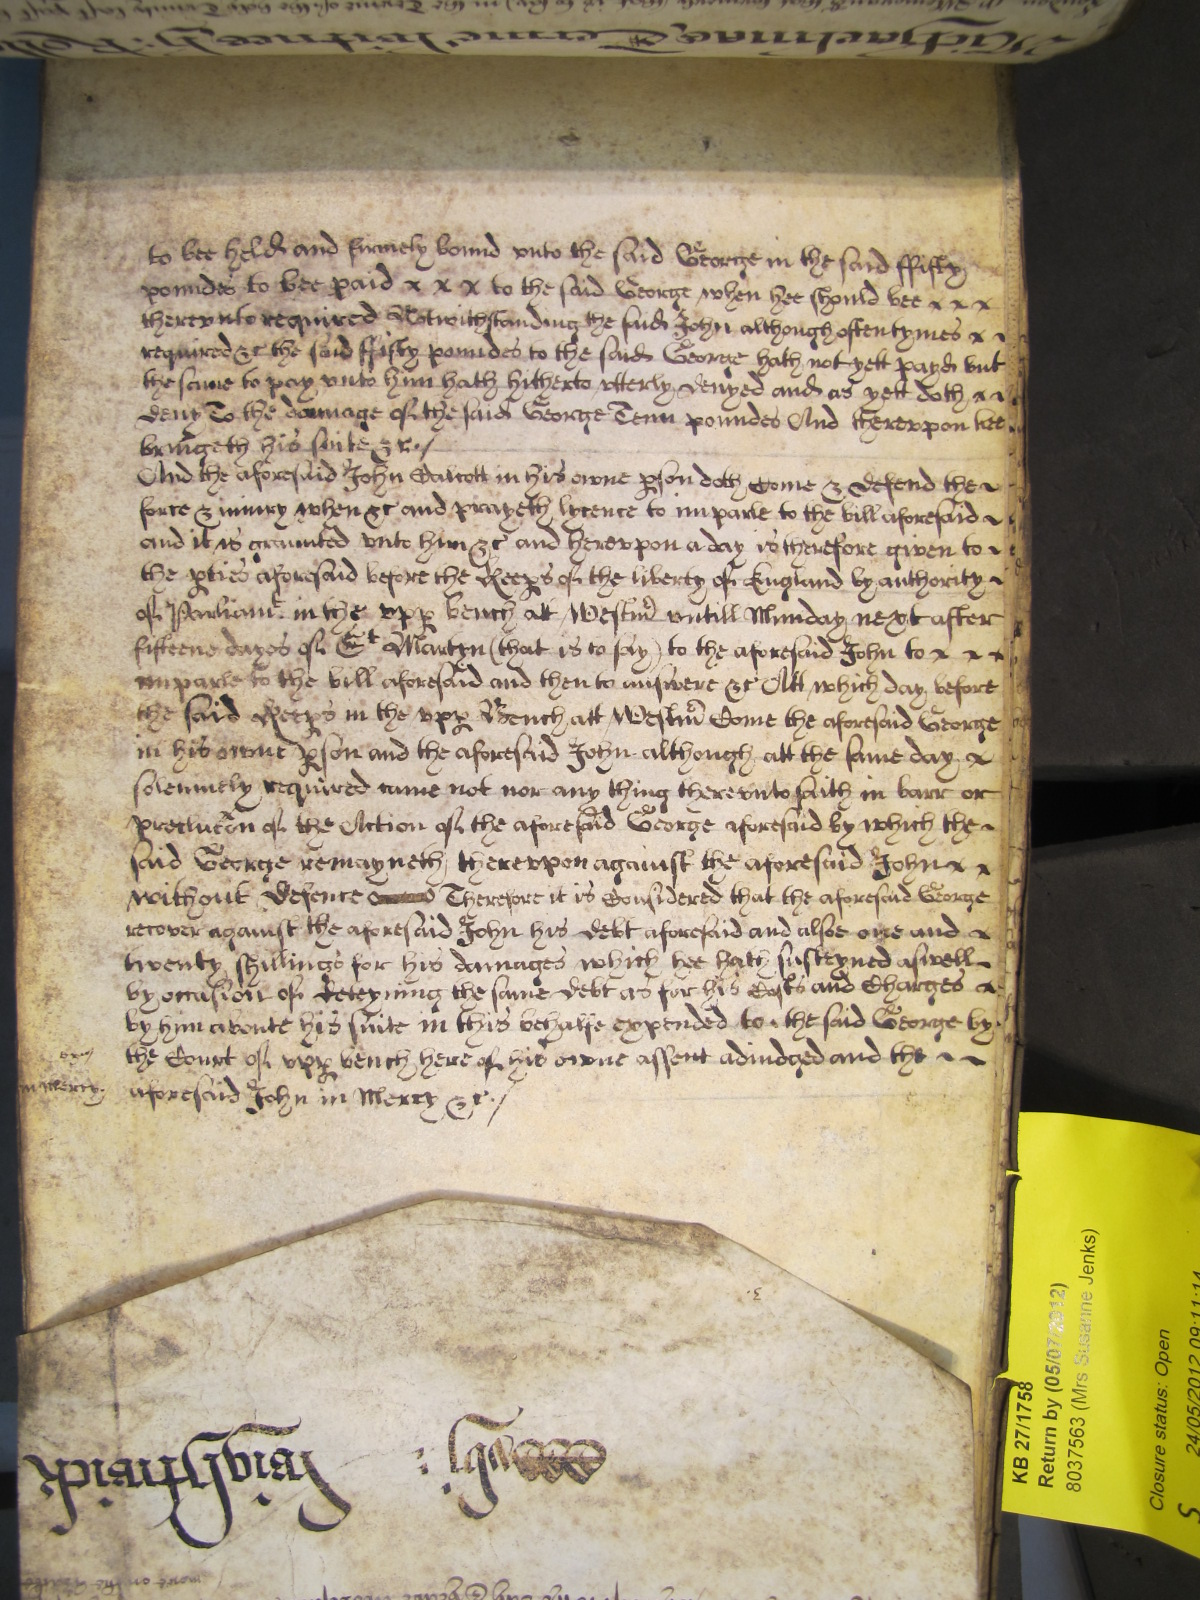 Michaelmas Terme Witnes H: Rolle
to bee held and firmely bound vnto the said George in the said ffifty
poundes to bee paid x x x to the said George when hee should bee x x x
therevnto required Notwithstanding the said John although oftentymes x
required &c the said ffifty poundes to the said George hath not yett payd but
the same to pay vnto him hath hitherto vtterly denyed and as yett doth x
deny To the damage of the said George Tenn poundes And therevpon hee
bringeth his suite &c./
And the aforesaid John in his owne pson doth Come & defend the
force & iniury when &c and prayeth lycence to imparle to the bill aforesaid
and it is graunted vnto him &c and herevpon a day is therefore given to
the pties aforesaid before the Keeps of the liberty of England by authority
of Parliamt in the vpp bench att Westm untill Munday next after
fifteene dayes of St Martyn (that is to say) to the aforesaid John to x x x
imparle to the bill aforesaid and then to answere &c Att which day before
the said Keeps in the vpp Bench att Westm Come the aforesaid George
in his owne pson and the aforesaid John although att the same day x
solemnely required came not nor any thing therevnto saith in barr or
preclucon of the Action of the aforesaid George aforesaid by which the
said George remayneth therevpon against the aforesaid John x x
without defence Therefore it is Considered that the aforesaid George
recover against the aforesaid John his debt aforesaid and alsoe one and x
twenty shillings for his damages which hee hath susteyned aswell
by occasion of deteyning the same debt as for his Costs and Charges
by him aboute his suite in this behalfe expended to the said George by
the Court of vpp bench here of his owne assent adiudged and the
in Mercy. aforesaid John in Mercy &c./
KB 27/1758
Return by (05/07/2012)
8037563 (Mrs Susanne Jenks)
Closure status: Open
24/05/2012 09:11:14
S